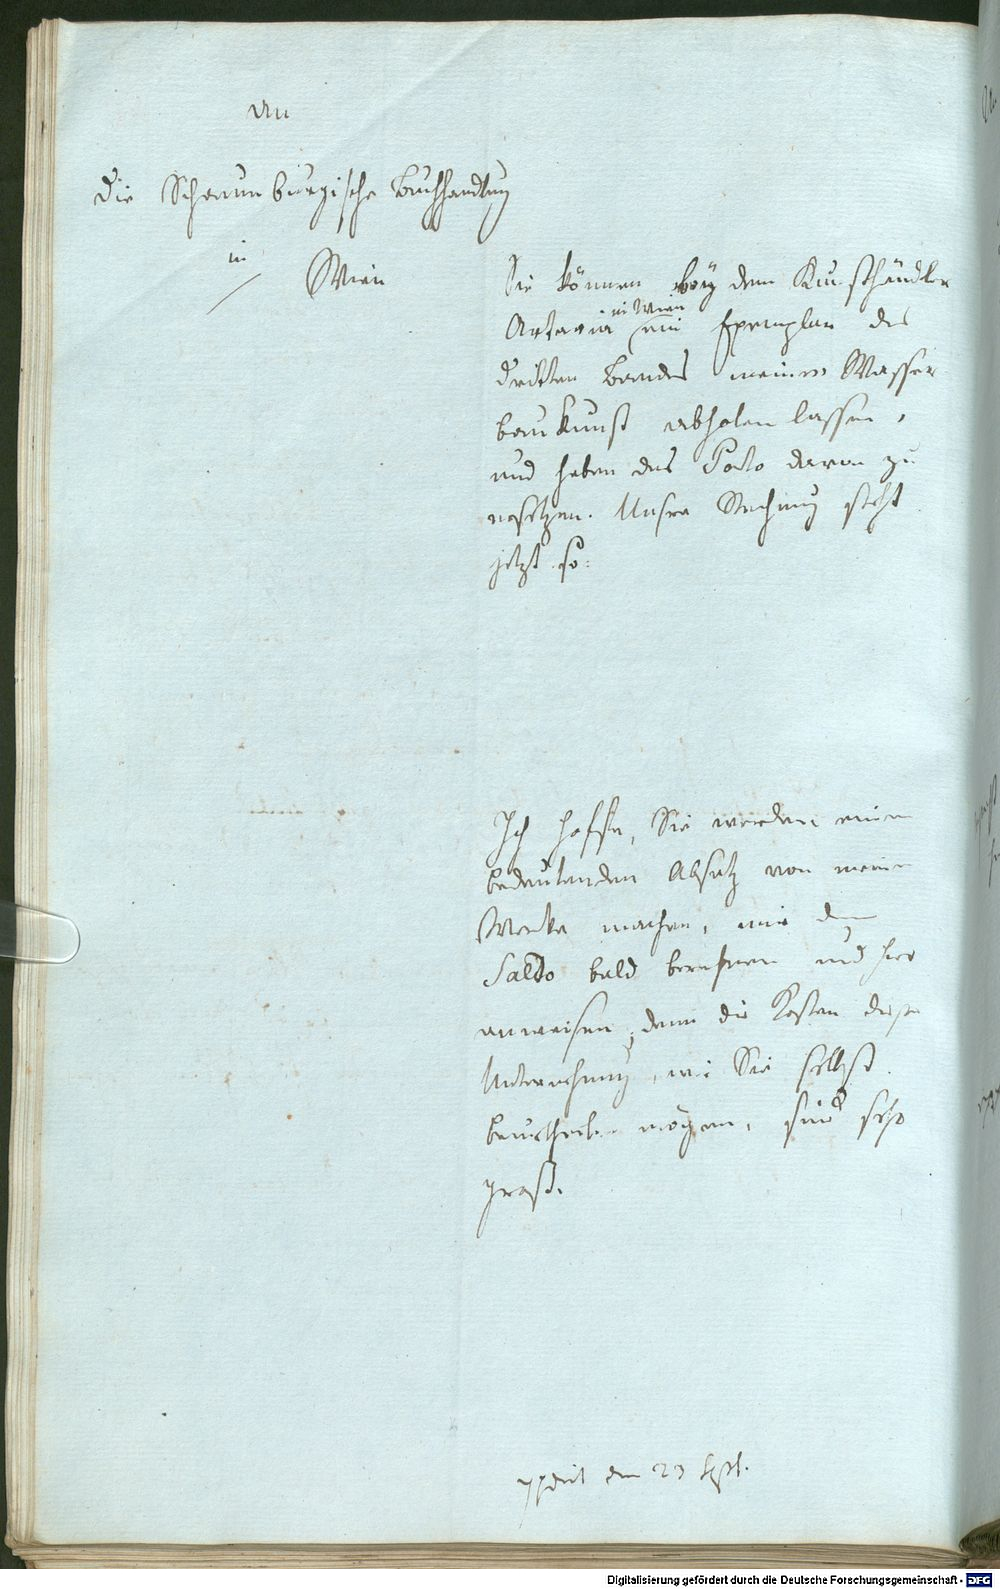 An
die Schaumburgische Buchhandlung
in
Wien
Sie können bey dem Kunsthändler
in Wien
Artaria ein Exemplar des
dritten Bandes meiner Wasser
bau Kunst abholen lassen,
und haben das Porto davon zu
ersetzen. Unsre Rechnung steht
jetzt so:
Ich hoffe, Sie werden einen
bedeutenden Absatz von meinem
Werke machen, mir den
Saldo bald berechnen und hier
anweisen, denn die Kosten dieser
Unternehmung, wie Sie selbst
beurtheilen mögen, sind sehr
groß.
expedirt den 23 Sept.
Digitalisierung gefördert durch die Deutsche Forschungsgemeinschaft - DFG